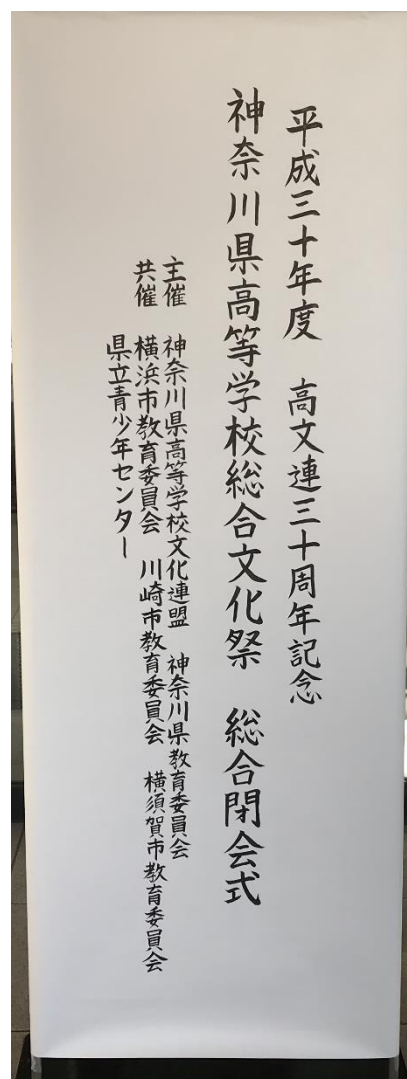 平成三十年度 高文連三十周年記念
神奈川県高等学校総合文化祭 総合閉会式
主催 神奈川県高等学校文化連盟 神奈川県教育委員会
共催 横浜市教育委員会 川崎市教育委員会 横須賀市教育委員会
県立青少年センター